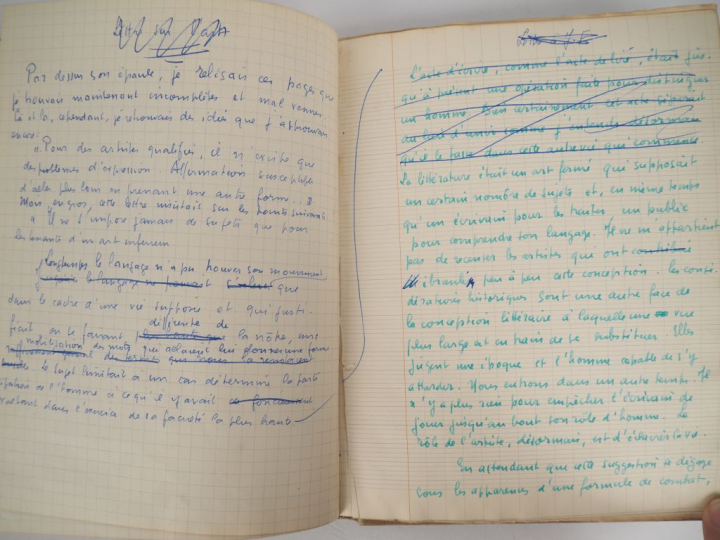 Par dessus son épaule, je relisais ces pages que
je trouvais maintenant incomplètes et mal venues.
Çà et là, cependant, je retrouvais des idées que j'approuvais
encore:
« Pour des artistes qualifiés, il n'existe que
des problèmes d'expression. Affirmation susceptible
d'aller plus loin en prenant une autre forme... »
Mais, en gros, cette lettre insistait sur les points suivants
« Il ne s'impose jamais de sujets que pour
les tenants d'un art inférieur.
Longtemps le langage n'a pu trouver son mouvement
que
dans le cadre d'une vie supposée et qui justi-
différente de
fiait en le faisant la nôtre, une
mobilisation des mots qui allaient lui donner une forme
le sujet limitait à un cas déterminé la parti
cipation de l'homme à ce qu'il y avait
dans l'exercice de sa faculté la plus haute
L'acte d'écrire, comme l'acte de lire, était jus-
qu'à présent une opération faite pour distinguer
un homme. Bien certainement cet acte séparait
du fait d'unir comme j'entends désormais
qu'il le fasse dans cette autre vie qui commence.
La littérature était un art fermé qui supposait
un certain nombre de sujets et, en même temps
qu'un écrivain pour les traiter, un public
pour comprendre son langage. Il ne m'appartient
pas de recenser les artistes qui ont
ébranlé peu à peu cette conception. Les consi-
dérations historiques sont une autre face de
la conception littéraire à laquelle une vue
plus large est en train de se substituer. Elles
figent une époque et l'homme capable de s'y
attarder. Nous entrons dans un autre temps. Il
n'y a plus rien pour empêcher l'écrivain de
jouer jusqu'au bout son rôle d'homme. Le
rôle de l'artiste, désormais, est d'éclairer la vie.
En attendant que cette suggestion se dégage
sous les apparences d'une formule de combat,